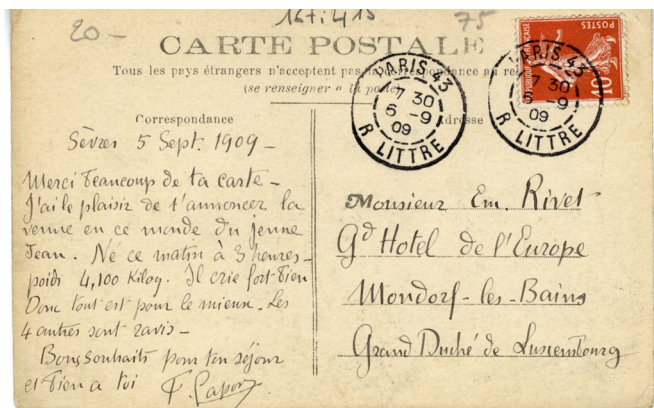 20-
16t:415
75
CARTE POSTALE
Tous les pays étrangers n'acceptent pas la correspondance au
(se renseigner a la poste)
Correspondance
Adresse
PARIS 43
7 30
6 -9
09
R LITTRE
PARIS 43
7 30
6 -9
09
R LITTRE
POSTES
10
Sèvres 5 Sept. 1909 -
Merci beaucoup de ta carte -
J'ai le plaisir de t'annoncer la
venue en ce monde du jeune
Jean. Né ce matin à 3 heures -
poids 4,100 Kilog. Il crie fort bien
Donc tout est pour le mieux. Les
4 autres sont ravis -
Bons souhaits pour ton séjour
et bien a toi
Monsieur Em. Rivet
Gd Hotel de l'Europe
Mondorf-les-Bains
Grand Duché de Luxembourg